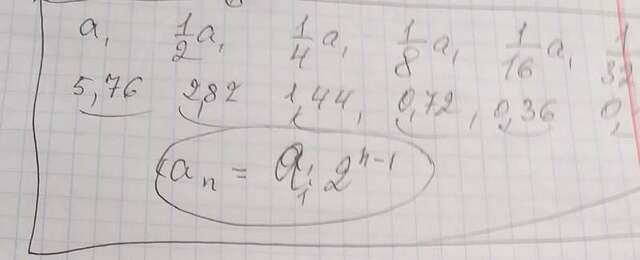 a₁ 1/2 a₁ 1/4 a₁ 1/8 a₁ 1/16 a₁ 1/32
5,76 2,82 1,44, 0,72, 0,36 0,
aₙ = a₁ : 2ⁿ⁻¹